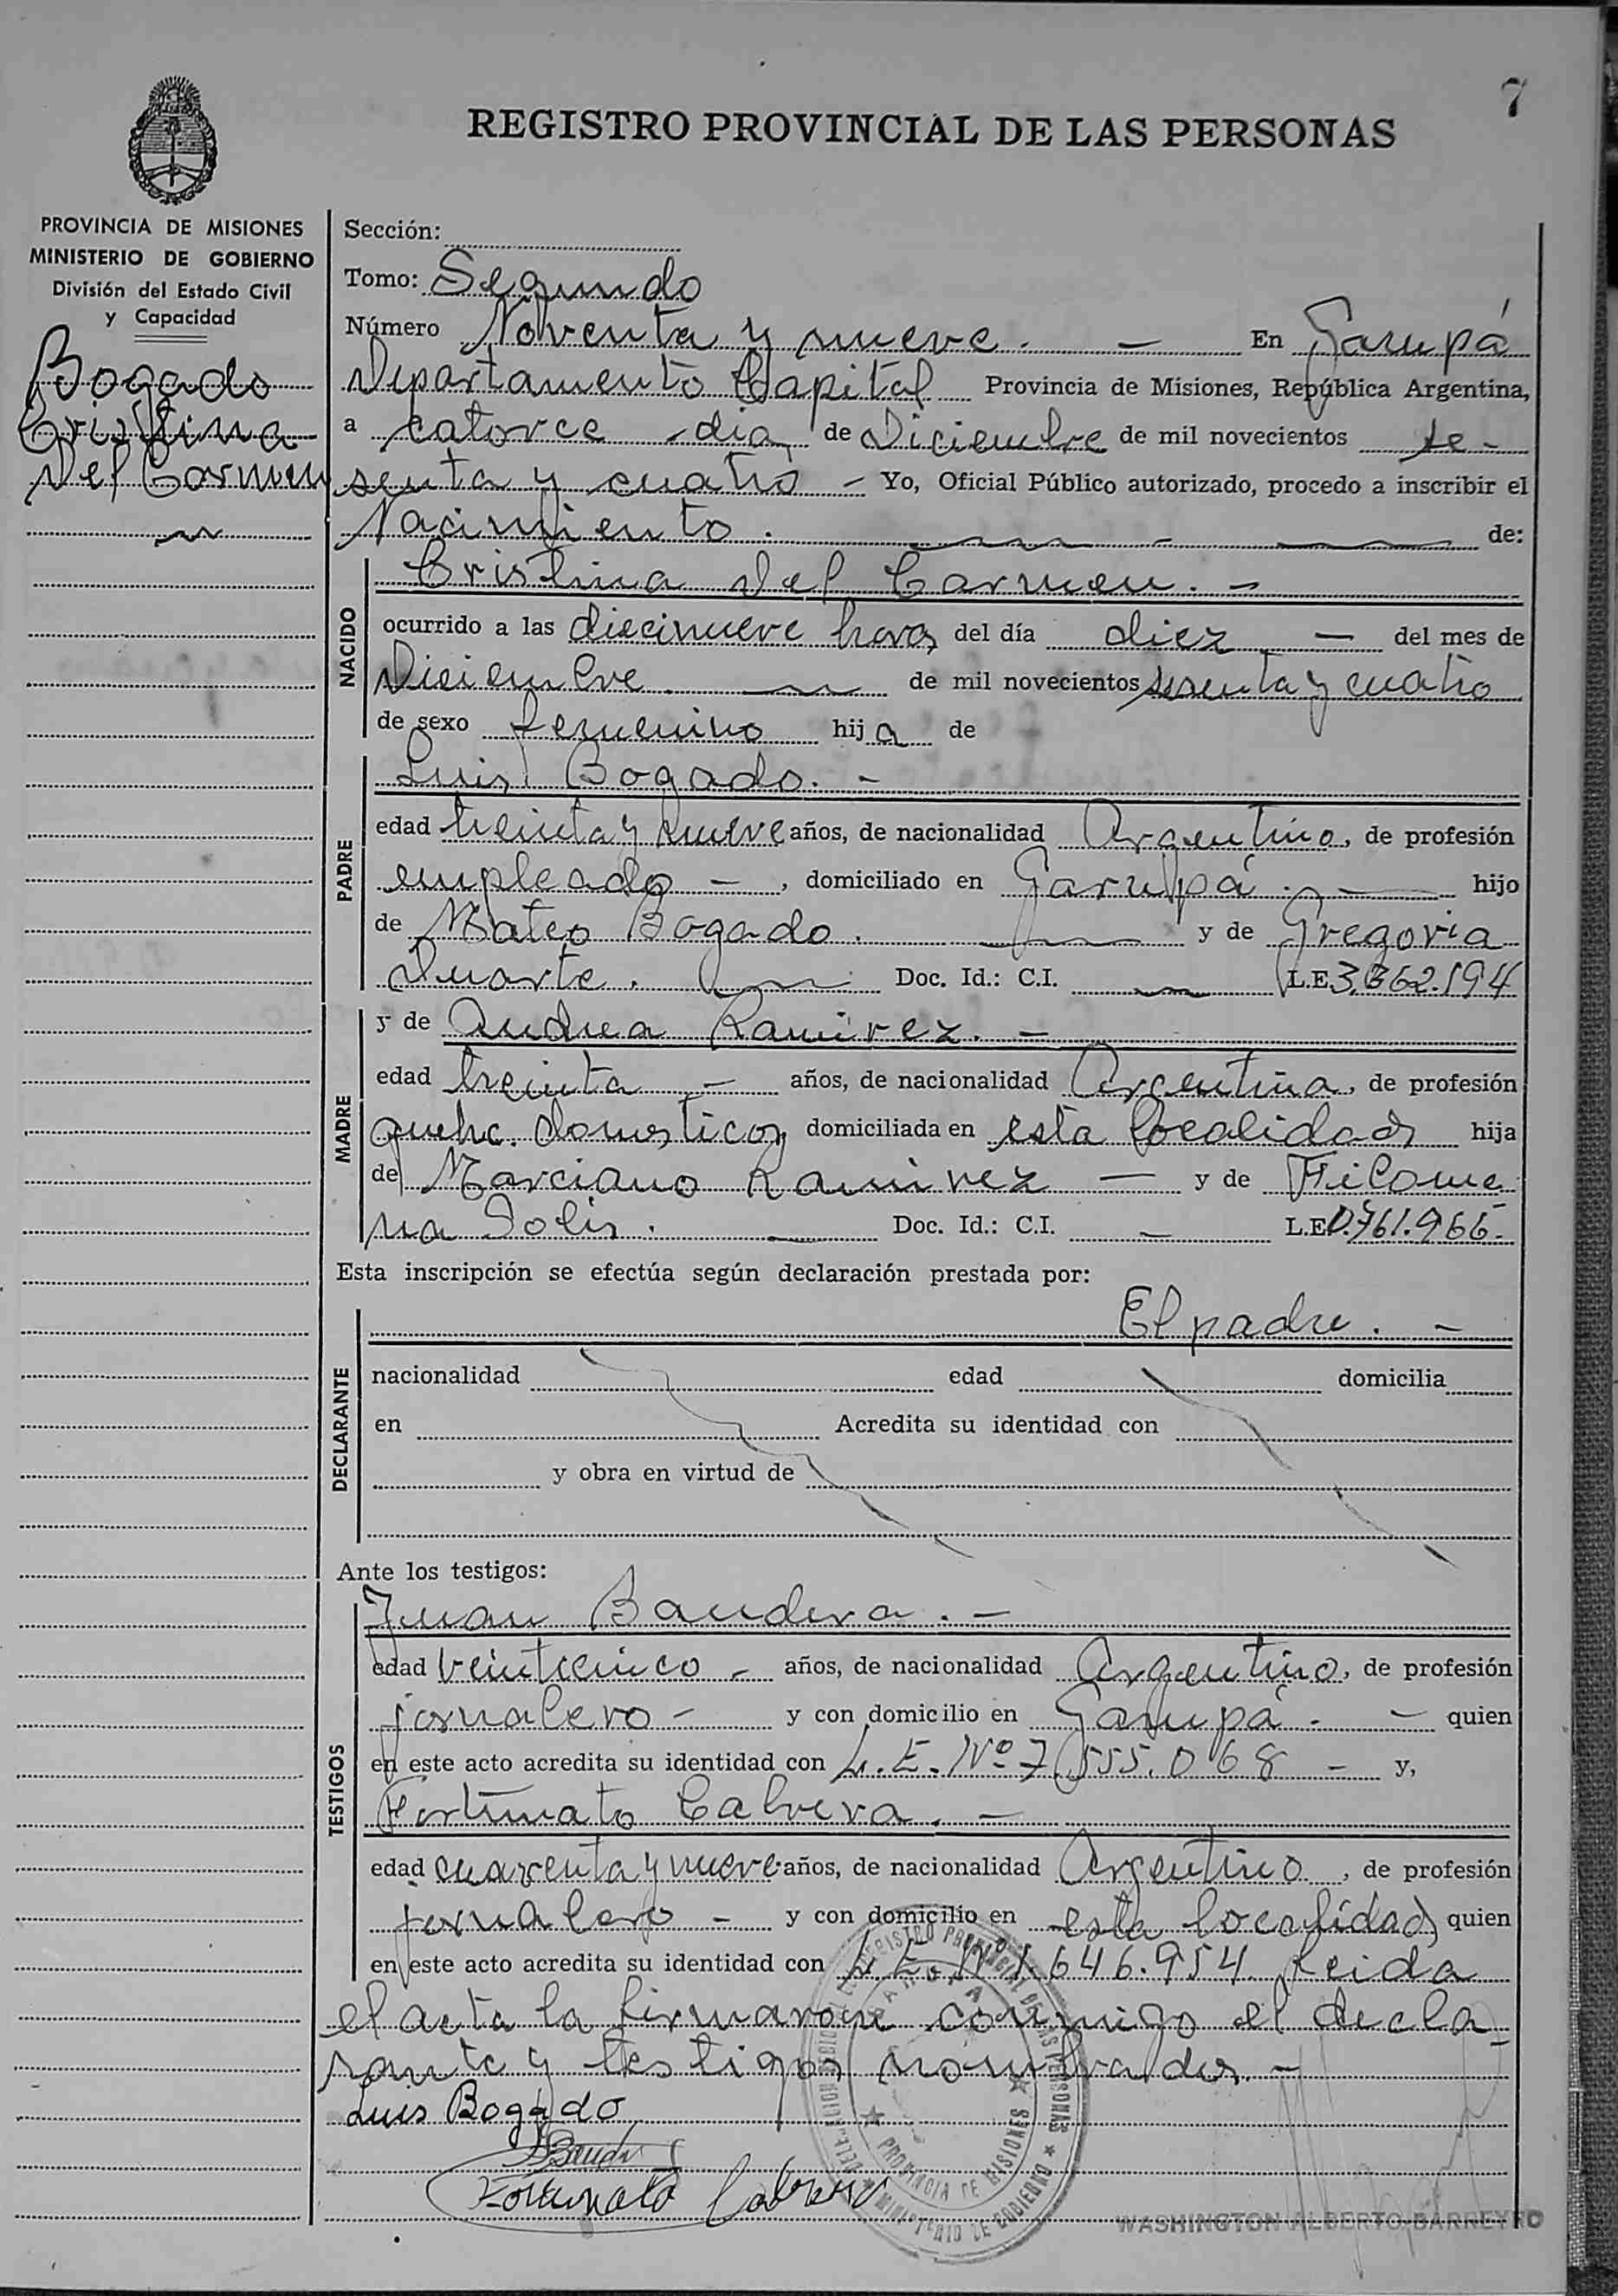 7
REGISTRO PROVINCIAL DE LAS PERSONAS
PROVINCIA DE MISIONES
MINISTERIO DE GOBIERNO
División del Estado Civil
y Capacidad
Bogado
Cristina
Del Carmen
Sección:
Tomo: Segundo
Número Noventa y nueve. — En Garupá
Departamento Capital Provincia de Misiones, República Argentina,
a catorce dia de Diciembre de mil novecientos se-
senta y cuatro - Yo, Oficial Público autorizado, procedo a inscribir el
Nacimiento. de:
NACIDO
Cristina Del Carmen. -
ocurrido a las diecinueve horas del día diez — del mes de
Diciembre de mil novecientos sesenta y cuatro
de sexo femenino hija de
PADRE
Luis Bogado. -
edad treinta y nueve años, de nacionalidad Argentino, de profesión
empleado - , domiciliado en Garupá. hijo
de Mateo Bogado. y de Gregoria
Duarte. Doc. Id.: C.I. — L.E. 3.362.194
MADRE
y de Andrea Ramirez. -
edad treinta - años, de nacionalidad Argentina, de profesión
quehc. domesticos domiciliada en esta localidad hija
de Marciano Ramirez — y de Filome-
na Solis. Doc. Id.: C.I. — L.E. 0.761.966-
Esta inscripción se efectúa según declaración prestada por:
DECLARANTE
El padre. -
nacionalidad edad domicilia
en Acredita su identidad con
y obra en virtud de
Ante los testigos:
TESTIGOS
Juan Bandera. -
edad veinticinco - años, de nacionalidad Argentino, de profesión
jornalero - y con domicilio en Garupá. - quien
en este acto acredita su identidad con L.E. Nº 7.555.068 - y,
Fortunato Cabrera. -
edad cuarenta y nueve años, de nacionalidad Argentino, de profesión
jornalero - y con domicilio en esta localidad quien
en este acto acredita su identidad con L.E. Nº 1.646.954. Leida
el acta la firmaron conmigo el decla-
rante y testigos nombrados. -
Luis Bogado
Fortunato Cabrera
REGISTRO PROVINCIAL DE LAS PERSONAS
GARUPA
PROVINCIA DE MISIONES
MINISTERIO DE GOBIERNO
WASHINGTON ALBERTO BARREYRO